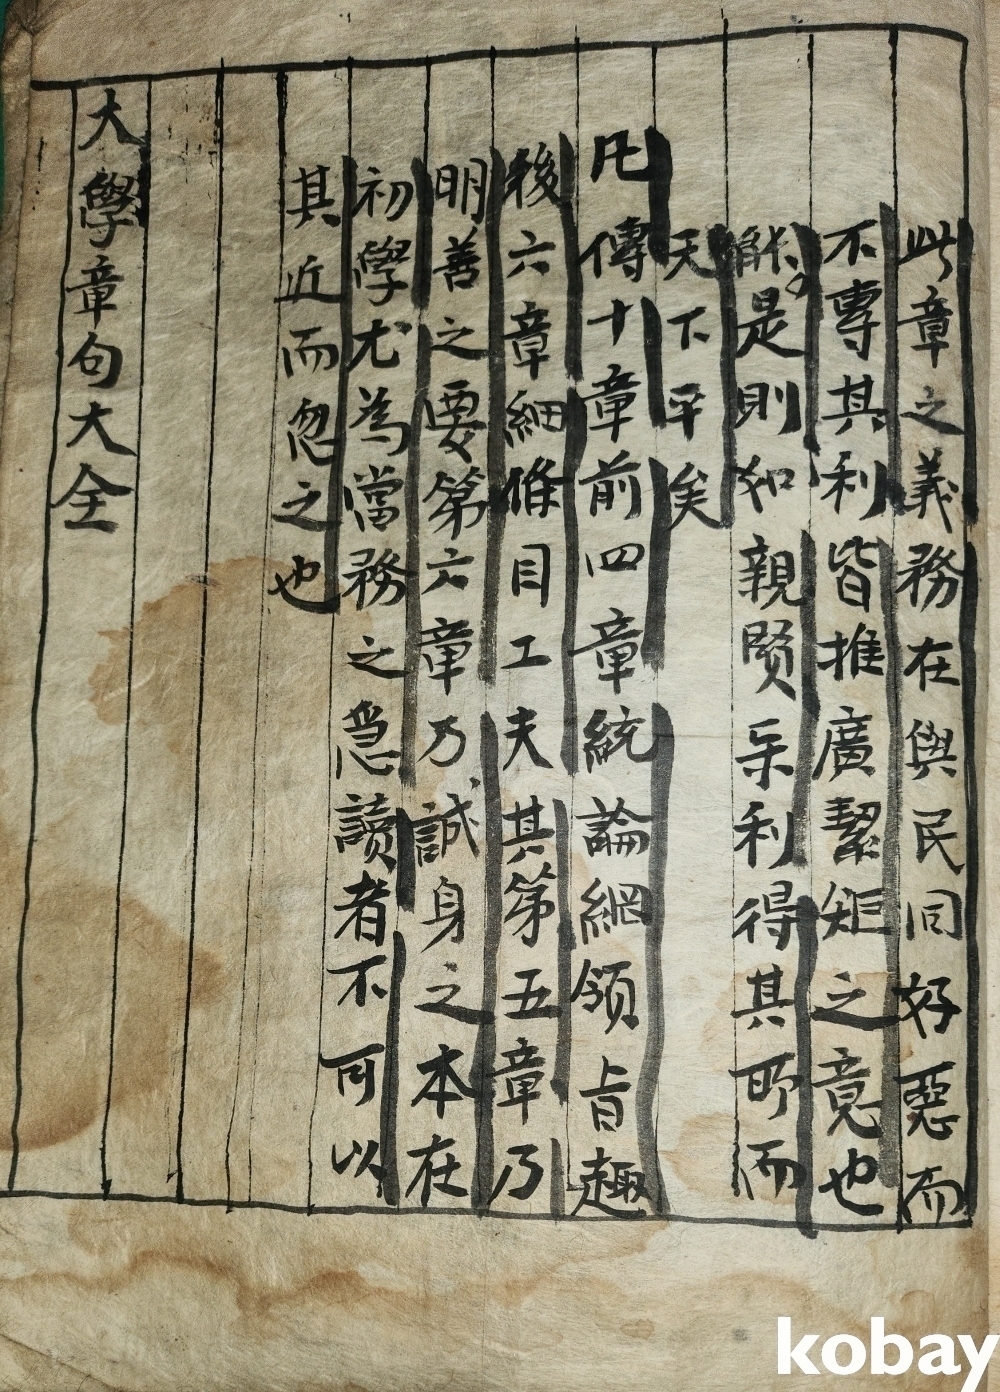 此章之義務在與民同好惡而
不專其利皆推廣絜矩之意也
能是則如親賢樂利得其所而
天下平矣
凡傳十章前四章統論綱領旨趣
後六章細條目工夫其第五章乃
明善之要第六章乃誠身之本在
初學尤為當務之急讀者不可以
其近而忽之也
大學章句大全
kobay